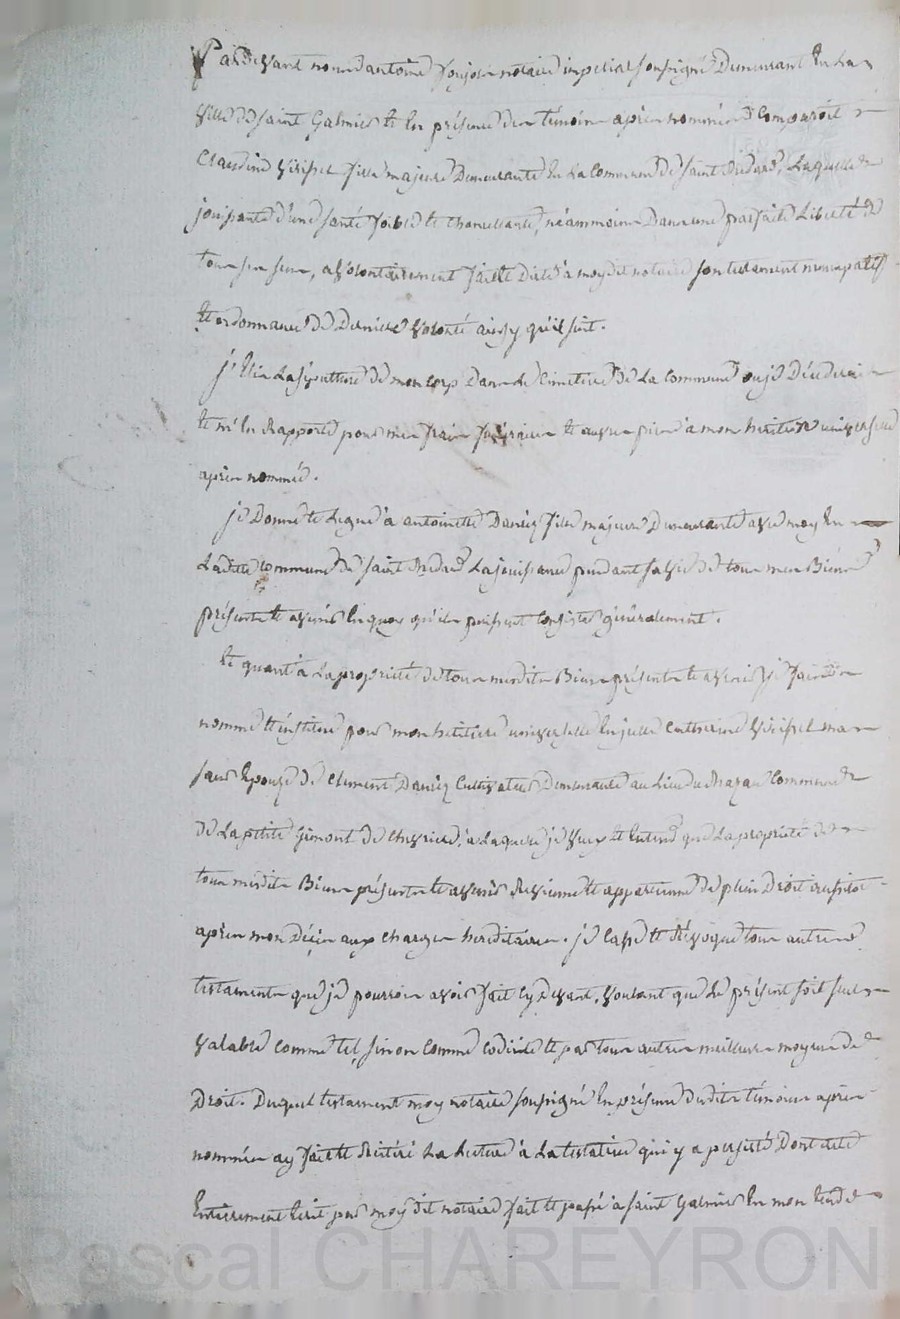 Pardevant nous antoine notaire imperial soussigné Demeurant En La
Ville de saint Galmier Et En présence des témoins après nommés Comparoit
Claudine Virissel fille majeure Demeurante En La Commune de saint Medard, Laquelle
jouissante d'une santé foible Et Chancellante, néammoins Dans une parfaite Liberté de
tous ses sens, a Volontairement fait Et Dicté a moy dit notaire son testament nuncupatif
Et ordonnance de Derniere Volonté ainsy qu'il suit.
j'Elis La sépulture de mon Corps Dans Le Cimetiere de La Commune ou je Décéderai
Et m'En Rapporte pour mes frais funéraires Et œuvres pies à mon héritiere universelle
après nommée.
je Donne Et Legue à antoinette Daniez fille majeure Demeurante avec moy En
Ladite Commune de saint Medard La jouissance pendant sa Vie de tous mes Biens
présents Et avenir En quoy qu'ils puissent Consister généralement.
Et quant à La propriété de tous mesdits Biens présents Et avenir je fais
nomme Et institue pour mon héritiere universelle En jcelle Catherine Virissel ma
sœur Epouze de Clement Daniez Cultivateur Demeurante au Lieu du Mazau Commune
de La petite Gimont de Chevrieres, a Laquelle je Veux Et Entend que La propriété de
tous mesdits Biens présents Et avenir Revienne Et appartienne de plein Droit aussitot
après mon Décès aux charges héréditaires. je Casse Et Révoque tous autres
testaments que je pourrois avoir fait Cy devant, Voulant que Le présent soit seul
Valable comme tel, sinon Comme Codicile Et par tous autres meilleurs moyens de
Droit. Duquel testament moy notaire soussigné En présence desdits témoins après
nommés ay fait Et Réitéré La Lecture à La testatrice qui y a persisté Dont acte
Entierement Ecrit par moy dit notaire fait Et passé à saint Galmier En mon Etude
Pascal CHAREYRON